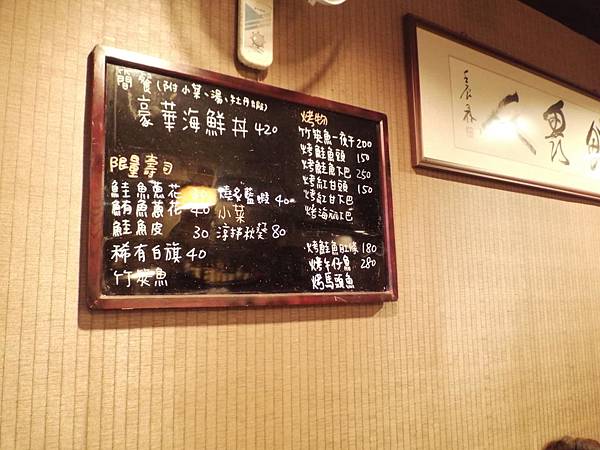 簡餐(附小菜、湯、
豪華海鮮丼 420
限量壽司
鮭魚蔥花
鮪魚蔥花 40
鮭魚皮 30
稀有白旗 40
竹筴魚
燒名藍蝦 40
小菜
淳邦秋葵 80
烤物
竹筴魚一夜干 200
烤鮭魚頭 150
烤鮭魚下巴 250
烤紅甘頭 150
烤紅甘下巴
烤海鱺下巴
烤鮭魚肚條 180
烤午仔魚 280
烤馬頭魚